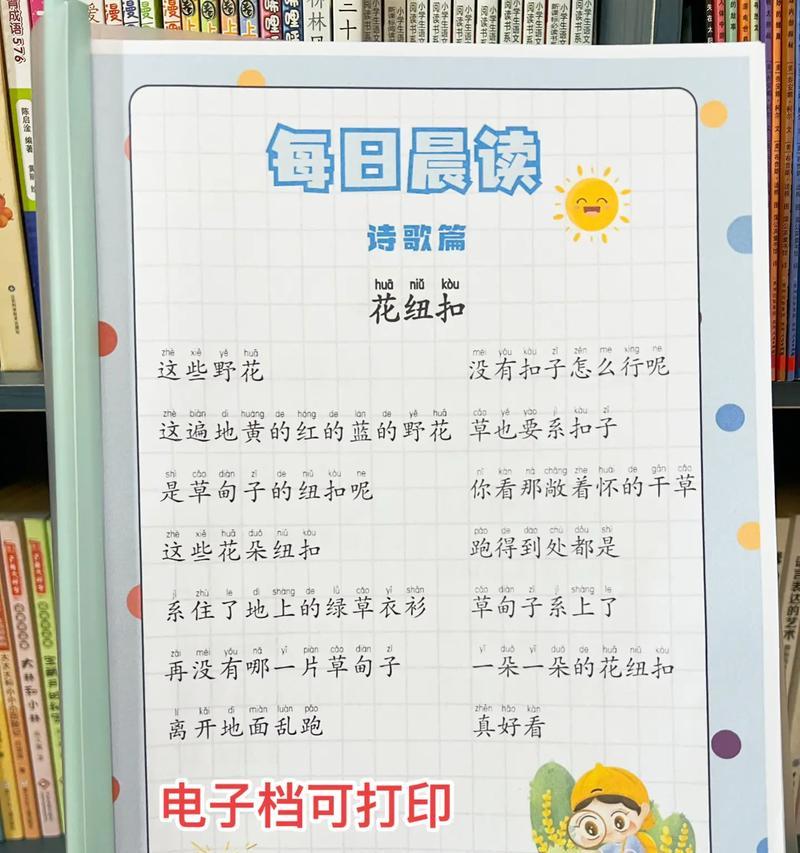 每日晨读
诗歌篇
huā niǔ kòu
花纽扣
zhè xiē yě huā
这些野花
zhè biàn dì huáng de hóng de lán de yě huā
这遍地黄的红的蓝的野花
shì cǎo diàn zǐ de niǔ kòu ne
是草甸子的纽扣呢
zhè xiē huā duǒ niǔ kòu
这些花朵纽扣
jì zhù le dì shàng de lǜ cǎo yī shān
系住了地上的绿草衣衫
zài méi yǒu nǎ yī piàn cǎo diàn zǐ
再没有哪一片草甸子
lí kāi dì miàn luàn pǎo
离开地面乱跑
méi yǒu kòu zǐ zěn me xíng ne
没有扣子怎么行呢
cǎo yě yào jì kòu zǐ
草也要系扣子
nǐ kàn nà chǎng zhe huái de gān cǎo
你看那敞着怀的干草
pǎo de dào chù dōu shì
跑得到处都是
cǎo diàn zǐ jì shàng le
草甸子系上了
yī duǒ yī duǒ de huā niǔ kòu
一朵一朵的花纽扣
zhēn hǎo kàn
真好看
电子档可打印
大林和小林